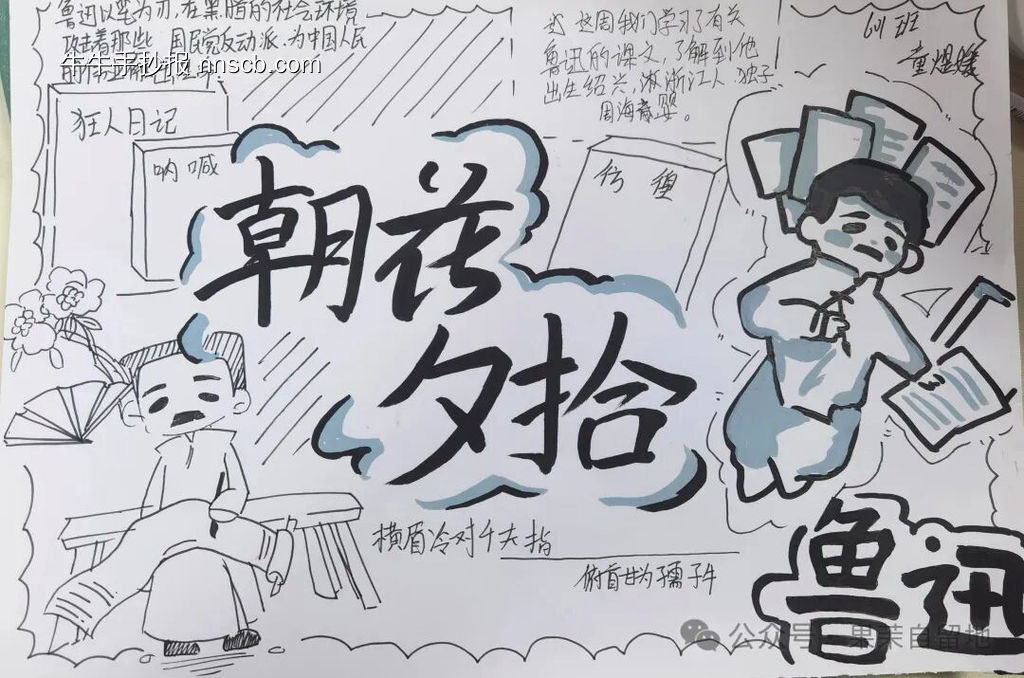 鲁迅以笔为刃,在黑暗的社会环境
攻击着那些 国民党反动派.为中国人民
牛牛手抄报 nnscb.com
这周我们学习了有关
鲁迅的课文,了解到他
出生绍兴,浙江人 独子
周海婴。
601班
狂人日记
呐喊
彷徨
朝花
夕拾
横眉冷对千夫指
俯首甘为孺子牛
鲁迅
公众号·果茉自留地